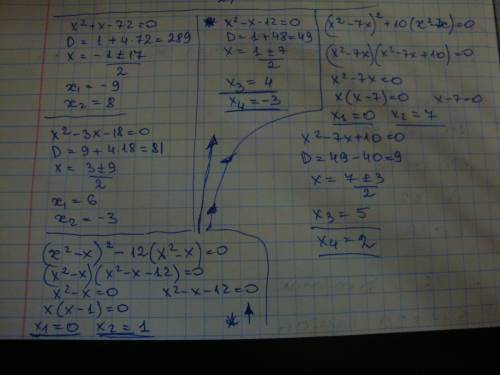 x²+x-72=0
D=1+4·72=289
x=-1±17/2
x₁=-9
x₂=8
x²-3x-18=0
D=9+4·18=81
x=3±9/2
x₁=6
x₂=-3
(x²-x)²-12(x²-x)=0
(x²-x)(x²-x-12)=0
x²-x=0 x²-x-12=0
x(x-1)=0
x₁=0 x₂=1
* x²-x-12=0
D=1+48=49
x=1±7/2
x₃=4
x₄=-3
(x²-7x)²+10(x²-7x)=0
(x²-7x)(x²-7x+10)=0
x²-7x=0
x(x-7)=0 x-7=0
x₁=0 x₂=7
x²-7x+10=0
D=49-40=9
x=7±3/2
x₃=5
x₄=2